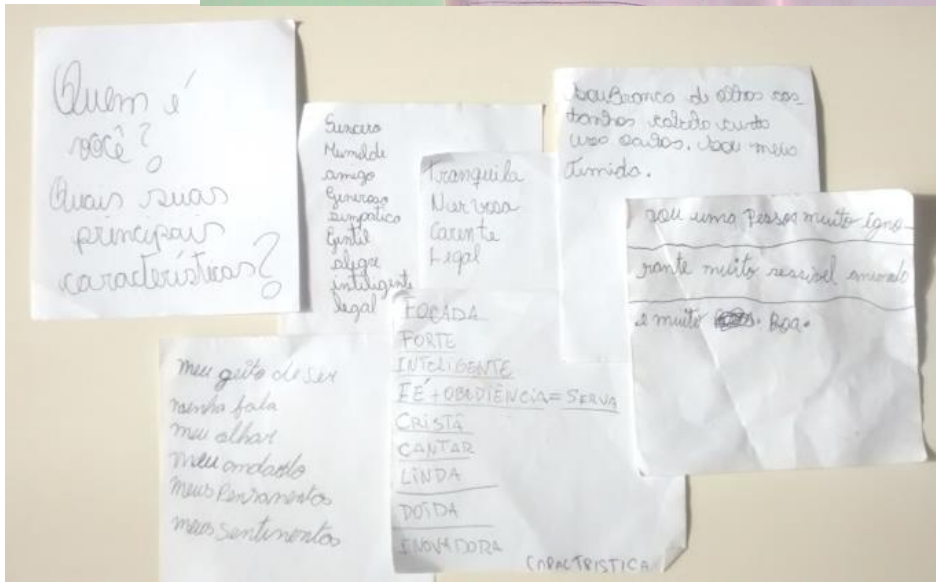 Quem é
você?
Quais suas
principais
características?
Sincero
Humilde
amigo
Generoso
simpatico
Gentil
alegre
inteligente
legal
Tranquila
Nervosa
Carente
Legal
sou Branco de olhos cas-
tanhos cabelo curto
uso oculos. sou meio
timido.
sou uma pessoa muito igno-
rante muito sensivel
e muito Boa.
meu geito de ser
minha fala
meu olhar
meu andado
meus Pensamentos
meus sentimentos
FOCADA
FORTE
INTELIGENTE
FÉ+OBEDIÊNCIA=SERVA
CRISTÃ
CANTAR
LINDA
DOIDA
INOVADORA
CARACTRISTICA